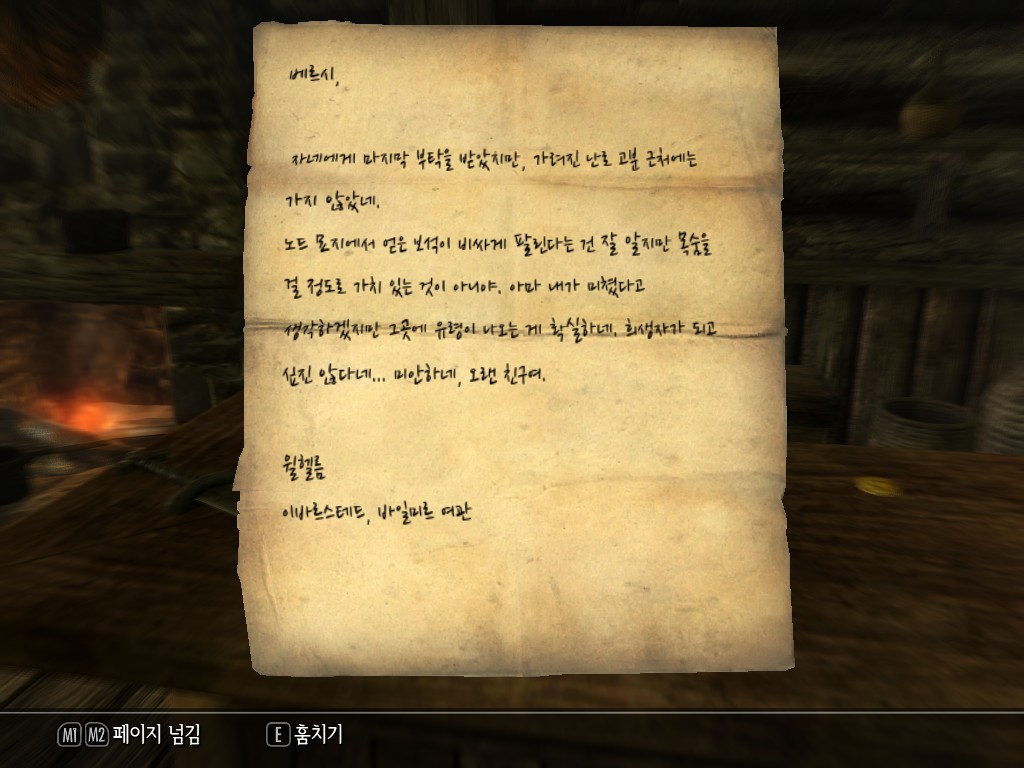 베르시,
자네에게 마지막 부탁을 받았지만, 가려진 난로 고분 근처에는
가지 않았네.
노드 묘지에서 얻은 보석이 비싸게 팔린다는 건 잘 알지만 목숨을
걸 정도로 가치 있는 것이 아니야. 아마 내가 미쳤다고
생각하겠지만 그곳에 유령이 나오는 게 확실하네. 희생자가 되고
싶진 않다네... 미안하네, 오랜 친구여.
윌헬름
이바르스테드, 바일미르 여관
M1 M2 페이지 넘김
E 훔치기